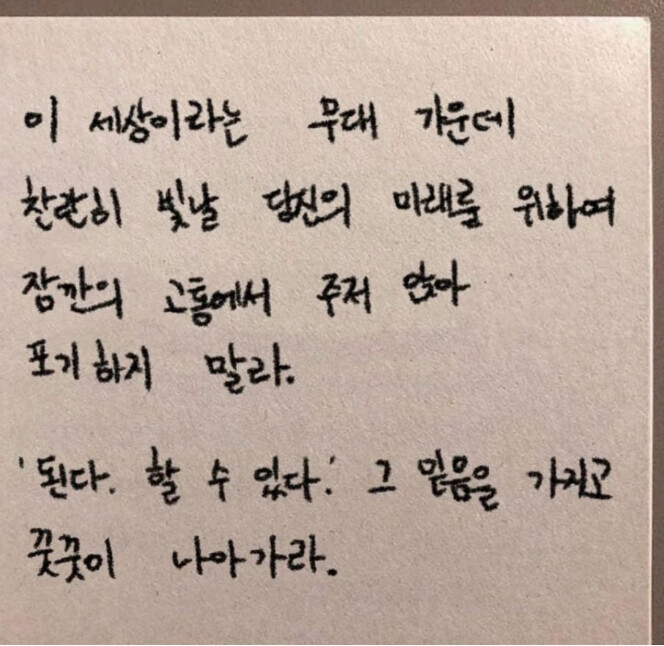 이 세상이라는 무대 가운데
찬란히 빛날 당신의 미래를 위하여
잠깐의 고통에서 주저 앉아
포기 하지 말라.
'된다. 할 수 있다.' 그 믿음을 가지고
꿋꿋이 나아가라.